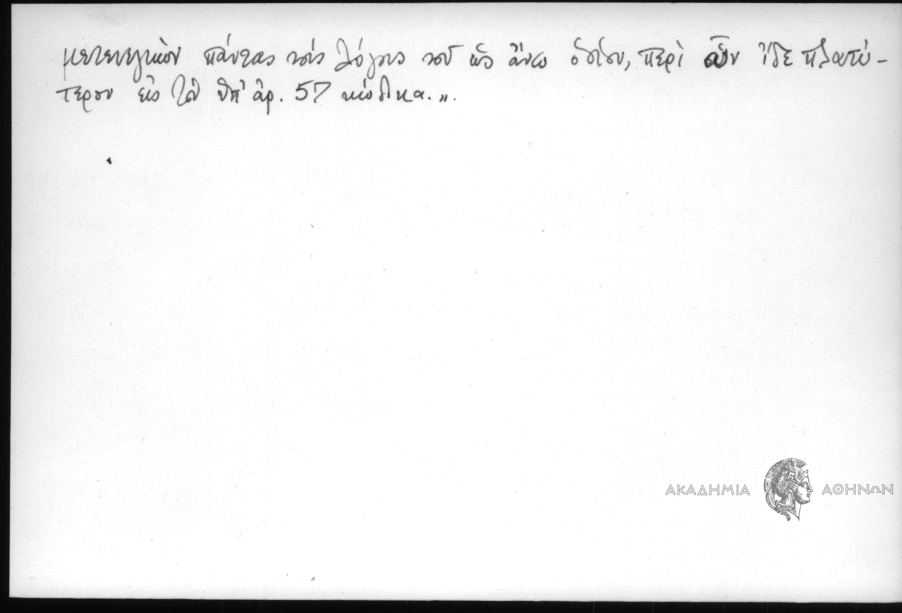 μετενεγκὼν πάντας τοὺς λόγους τοῦ ὡς ἄνω ὁσίου, περὶ ὧν ἴδε πλατύ-
τερον εἰς τὸν ὑπ' ἀρ. 57 κώδικα.".
ΑΚΑΔΗΜΙΑ ΑΘΗΝΩΝ